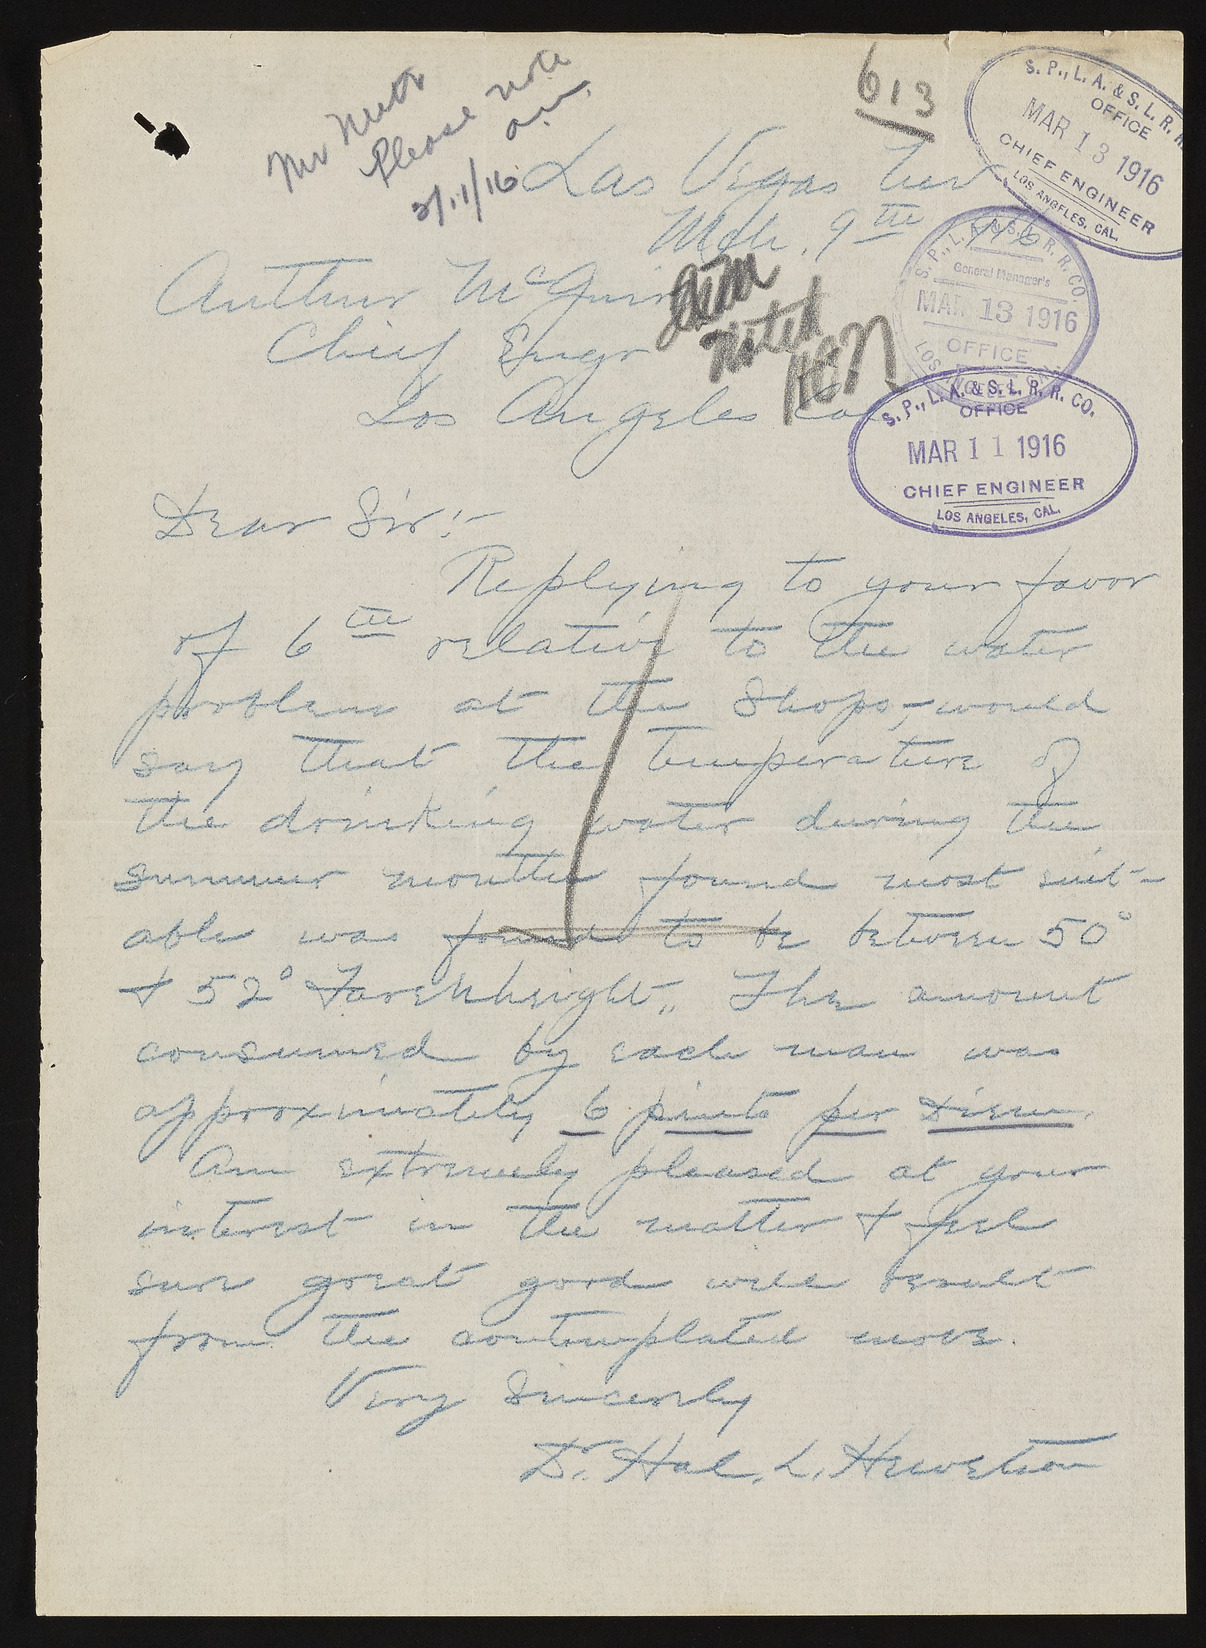 Mr Nutt
Please note
3/11/16
613
S. P., L. A. & S. L. R. R.
OFFICE
MAR 13 1916
CHIEF ENGINEER
LOS ANGELES, CAL.
Las Vegas Nev
Mch. 9th 1916
S. P., L. A. & S. L. R. R. CO.
General Manager's
MAR 13 1916
OFFICE
Arthur McGuire
Chief Engr
Los Angeles Cal
Noted
S. P., L. A. & S. L. R. R. CO.
OFFICE
MAR 11 1916
CHIEF ENGINEER
LOS ANGELES, CAL.
Dear Sir:-
Replying to your favor
of 6th relative to the water
problem at the Shops, - would
say that the temperature of
the drinking water during the
summer months found most suit-
able was found to be between 50°
& 52° Farenheight. The amount
consumed by each man was
approximately 6 pints per Diem.
Am extremely pleased at your
interest in the matter & feel
sure great good will result
from the contemplated move.
Very Sincerely
Dr. Hal. L. Hewetson